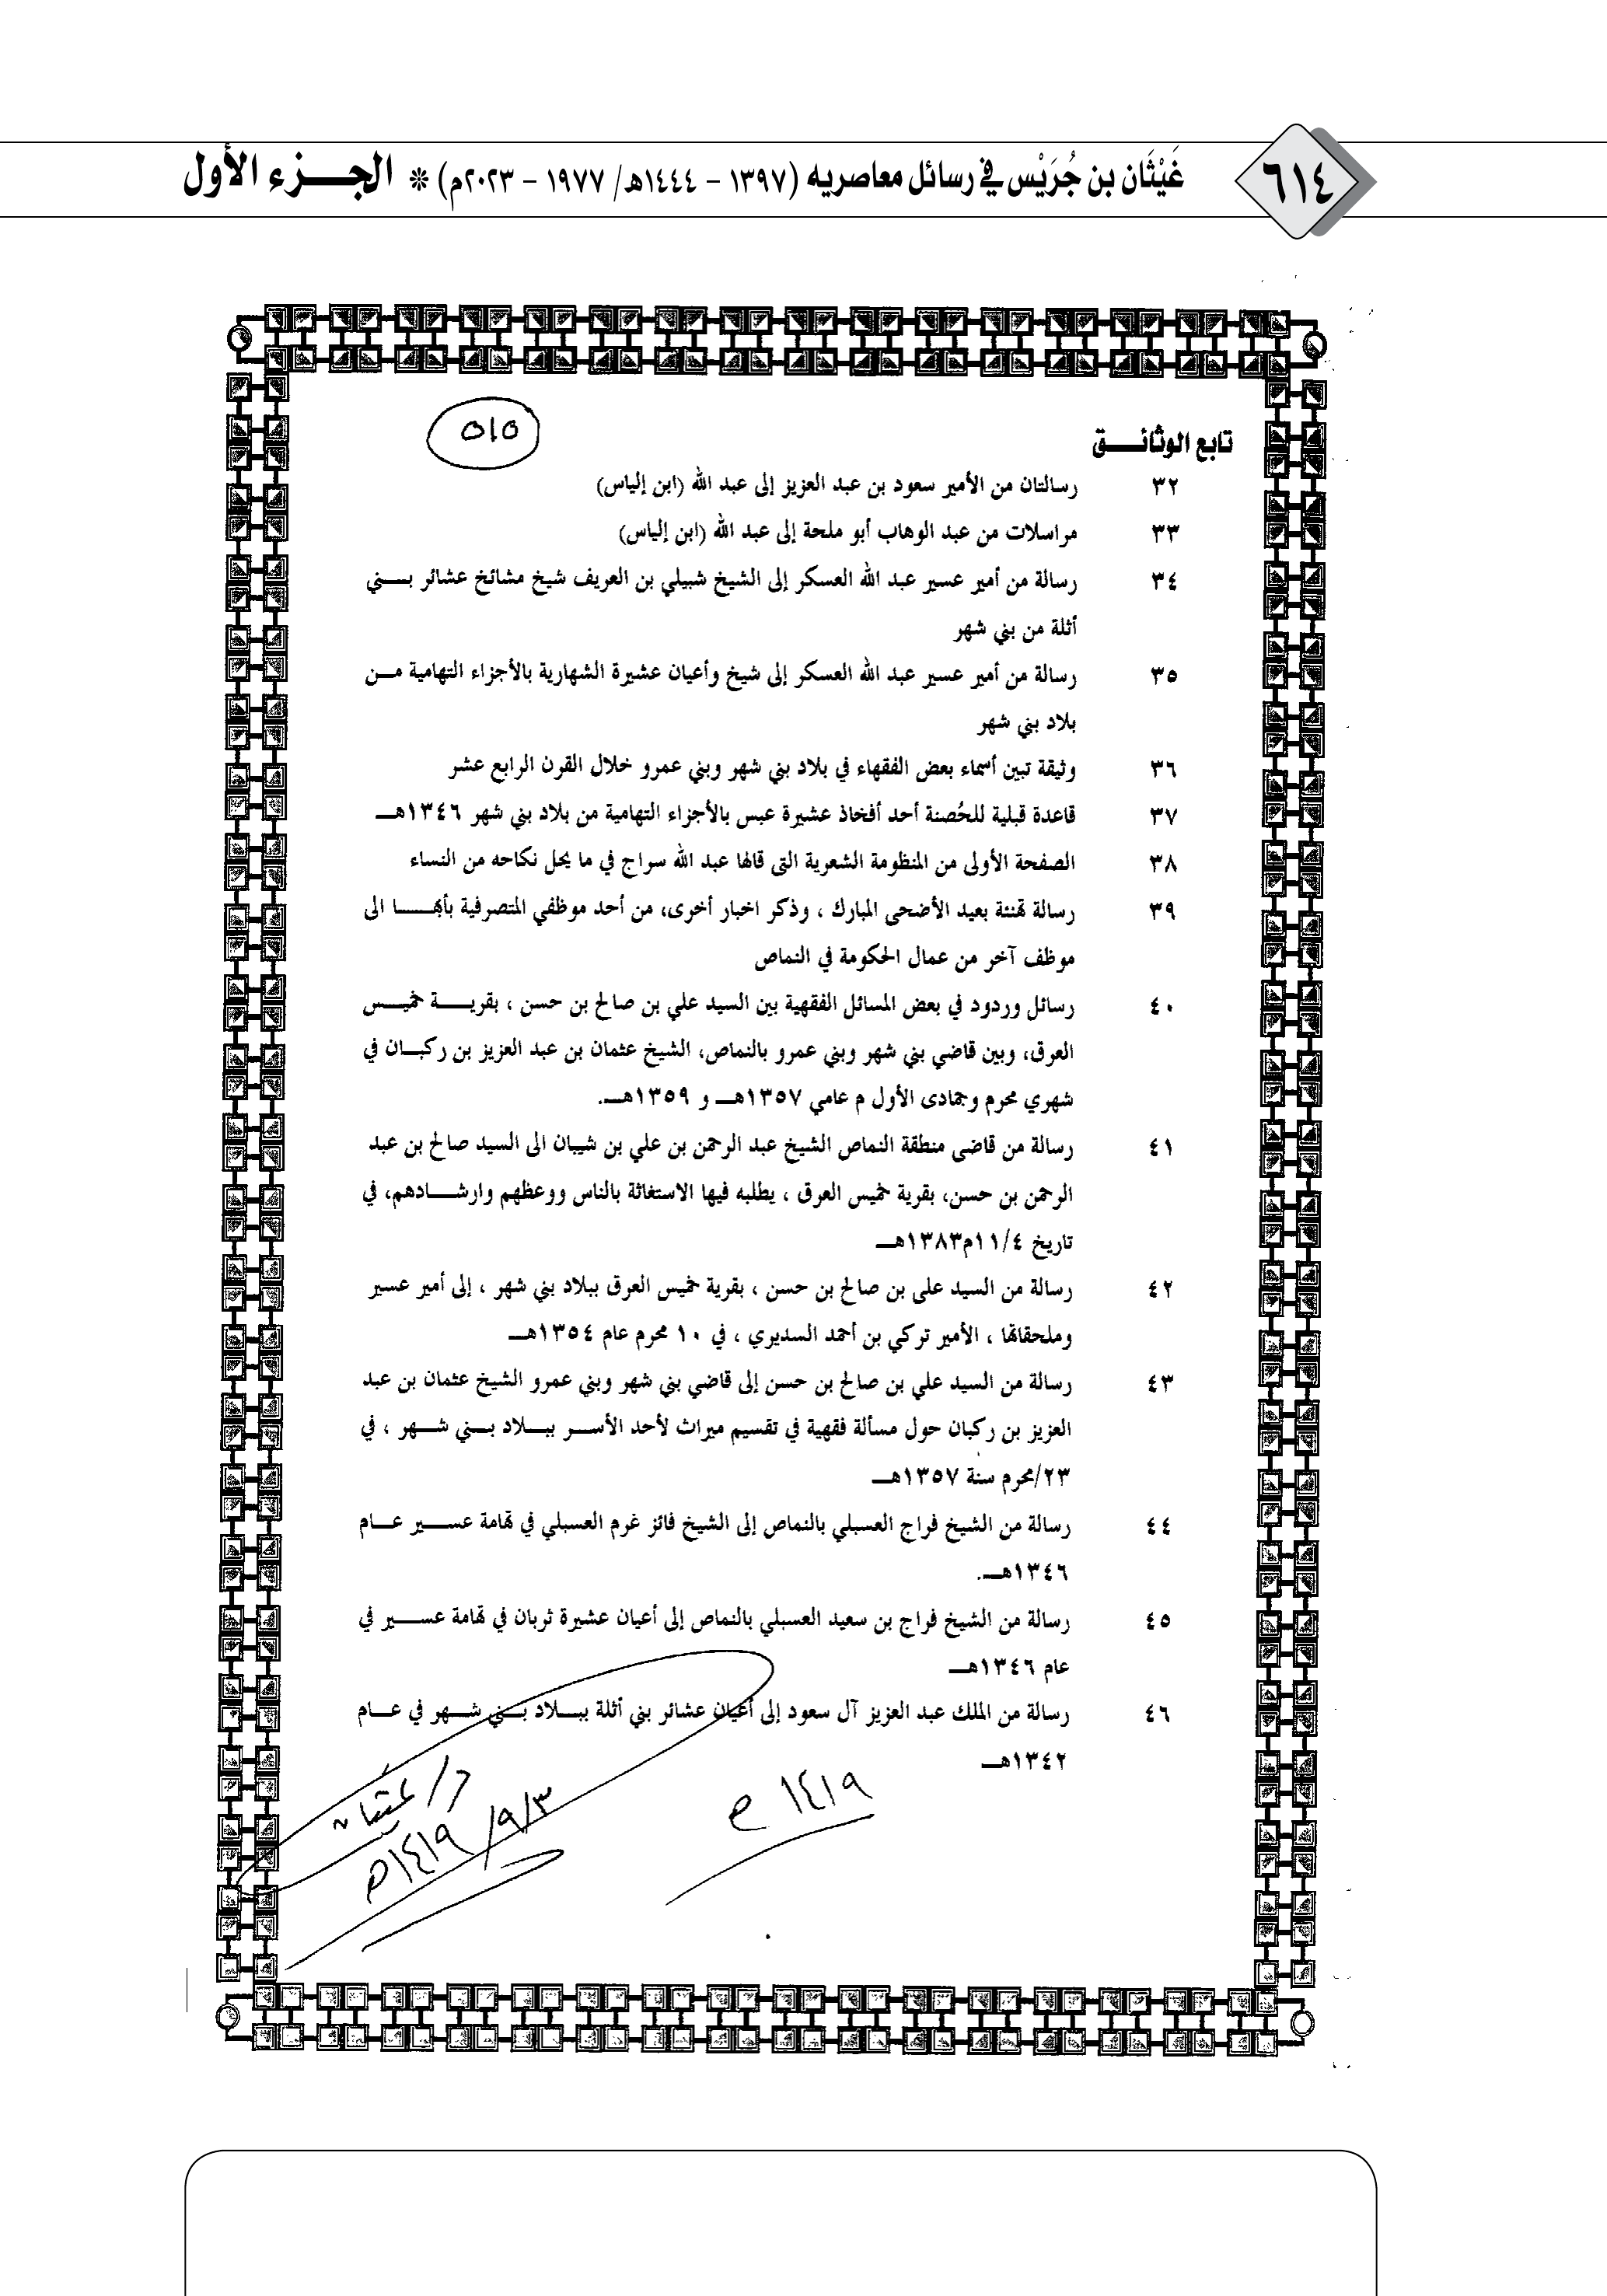 ٦١٤
غَيْثَان بن جُرَيْس في رسائل معاصريه (١٣٩٧ - ١٤٤٤هـ/ ١٩٧٧ - ٢٠٢٣م) * الجـــزء الأول
٥١٥
تابع الوثائــــق
٣٢ رسالتان من الأمير سعود بن عبد العزيز إلى عبد الله (ابن إلياس)
٣٣ مراسلات من عبد الوهاب أبو ملحة إلى عبد الله (ابن إلياس)
٣٤ رسالة من أمير عسير عبد الله العسكر إلى الشيخ شبيلي بن العريف شيخ مشائخ عشائر بـــني
أثلة من بني شهر
٣٥ رسالة من أمير عسير عبد الله العسكر إلى شيخ وأعيان عشيرة الشهارية بالأجزاء التهامية مـــن
بلاد بني شهر
٣٦ وثيقة تبين أسماء بعض الفقهاء في بلاد بني شهر وبني عمرو خلال القرن الرابع عشر
٣٧ قاعدة قبلية للحُصنة أحد أفخاذ عشيرة عبس بالأجزاء التهامية من بلاد بني شهر ١٣٤٦هـــ
٣٨ الصفحة الأولى من المنظومة الشعرية التى قالها عبد الله سراج في ما يحل نكاحه من النساء
٣٩ رسالة تهنئة بعيد الأضحى المبارك ، وذكر اخبار أخرى، من أحد موظفي المتصرفية بأبهـــا الى
موظف آخر من عمال الحكومة في النماص
٤٠ رسائل وردود في بعض المسائل الفقهية بين السيد علي بن صالح بن حسن ، بقريـــة خميـــس
العرق، وبين قاضي بني شهر وبني عمرو بالنماص، الشيخ عثمان بن عبد العزيز بن ركبـــان في
شهري محرم وجمادى الأول م عامي ١٣٥٧هـــ و ١٣٥٩هـــ.
٤١ رسالة من قاضى منطقة النماص الشيخ عبد الرحمن بن علي بن شيبان الى السيد صالح بن عبد
الرحمن بن حسن، بقرية خميس العرق ، يطلبه فيها الاستغاثة بالناس ووعظهم وارشـــادهم، في
تاريخ ١١/٤م١٣٨٣هـــ
٤٢ رسالة من السيد على بن صالح بن حسن ، بقرية خميس العرق ببلاد بني شهر ، إلى أمير عسير
وملحقاتها ، الأمير تركي بن أحمد السديري ، في ١٠ محرم عام ١٣٥٤هـــ
٤٣ رسالة من السيد علي بن صالح بن حسن إلى قاضي بني شهر وبني عمرو الشيخ عثمان بن عبد
العزيز بن ركبان حول مسألة فقهية في تقسيم ميراث لأحد الأســـر ببـــلاد بـــني شـــهر ، في
٢٣/محرم سنة ١٣٥٧هـــ
٤٤ رسالة من الشيخ فراج العسبلي بالنماص إلى الشيخ فائز غرم العسبلي في تهامة عســـير عـــام
١٣٤٦هـــ.
٤٥ رسالة من الشيخ فراج بن سعيد العسبلي بالنماص إلى أعيان عشيرة ثربان في تهامة عســـير في
عام ١٣٤٦هـــ
٤٦ رسالة من الملك عبد العزيز آل سعود إلى أعيان عشائر بني أثلة ببـــلاد بـــني شـــهر في عـــام
١٣٤٢هـــ
١٤١٩ هـ
د/ غيثان
٣/٩/١٤١٩هـ